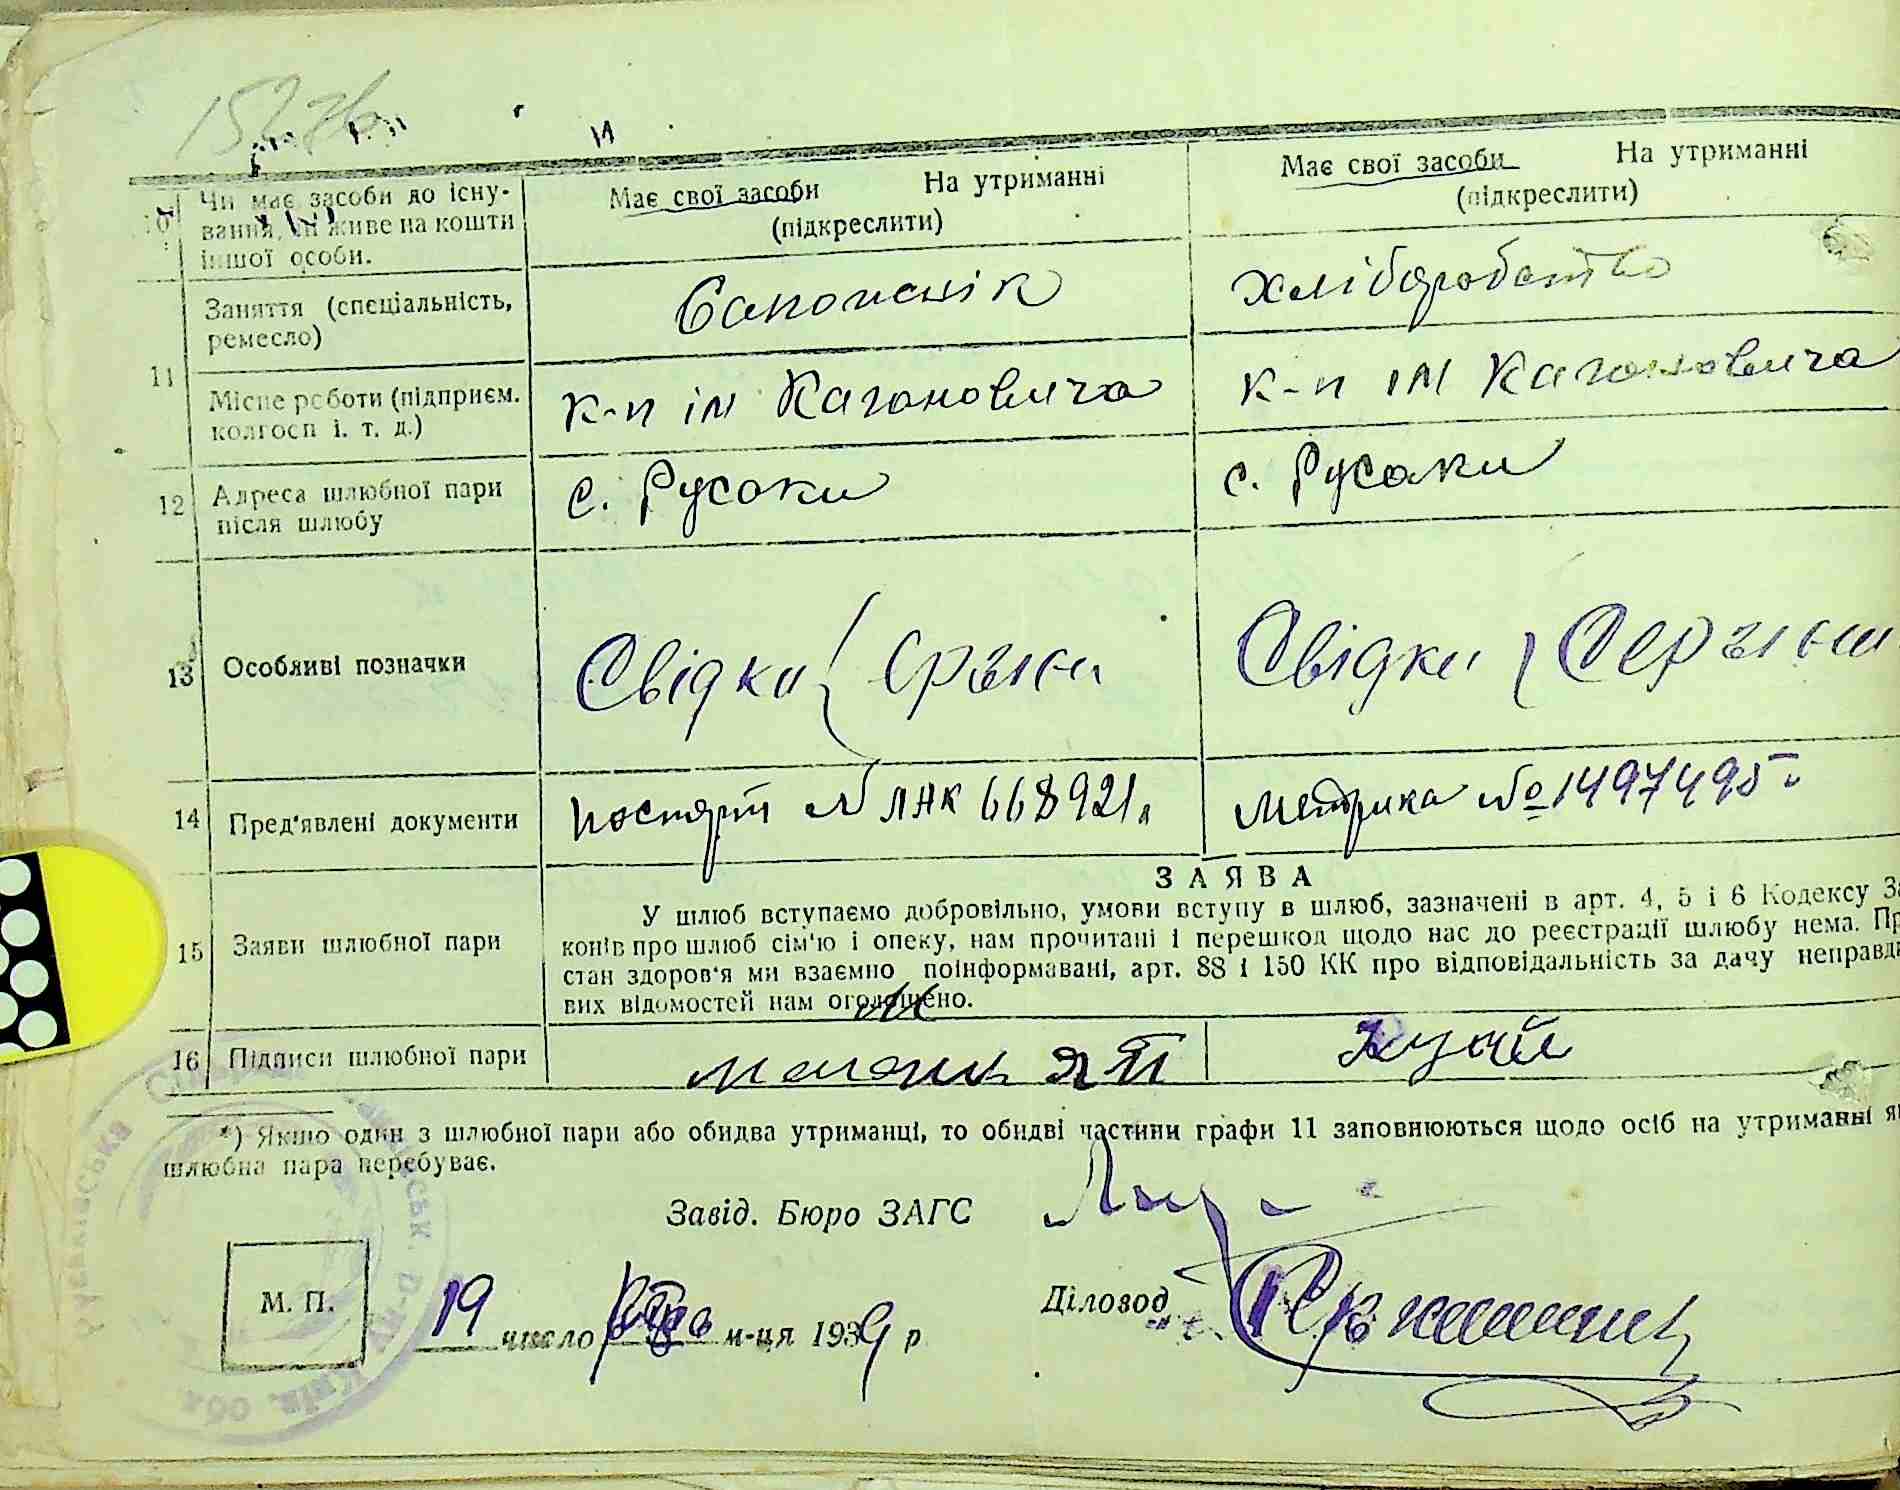 10 Чи має засоби до існу-
вання, чи живе на кошти
іншої особи.
Має свої засоби На утриманні
(підкреслити)
Має свої засоби На утриманні
(підкреслити)
11
Заняття (спеціальність,
ремесло)
Сапожнік
Хліборобство
Місце роботи (підприєм.
колгосп і. т. д.)
к-п ім Кагановича
к-п ім Кагановича
12 Адреса шлюбної пари
після шлюбу
с. Русаки
с. Русаки
13 Особливі позначки
Свідки
Свідки
14 Пред'явлені документи
Паспорт № ЛНК 668921
Метрика № 1497495
ЗАЯВА
15 Заяви шлюбної пари
У шлюб вступаємо добровільно, умови вступу в шлюб, зазначені в арт. 4, 5 і 6 Кодексу За
конів про шлюб сім'ю і опеку, нам прочитані і перешкод щодо нас до реєстрації шлюбу нема. Пр
стан здоров'я ми взаємно поінформавані, арт. 88 і 150 КК про відповідальність за дачу неправди
вих відомостей нам оголошено.
16 Підписи шлюбної пари
*) Якшо один з шлюбної пари або обидва утриманці, то обидві частини графи 11 заповнюються щодо осіб на утриманні як
шлюбна пара перебуває.
Завід. Бюро ЗАГС
Діловод
М. П.
19 число м-ця 1939 р